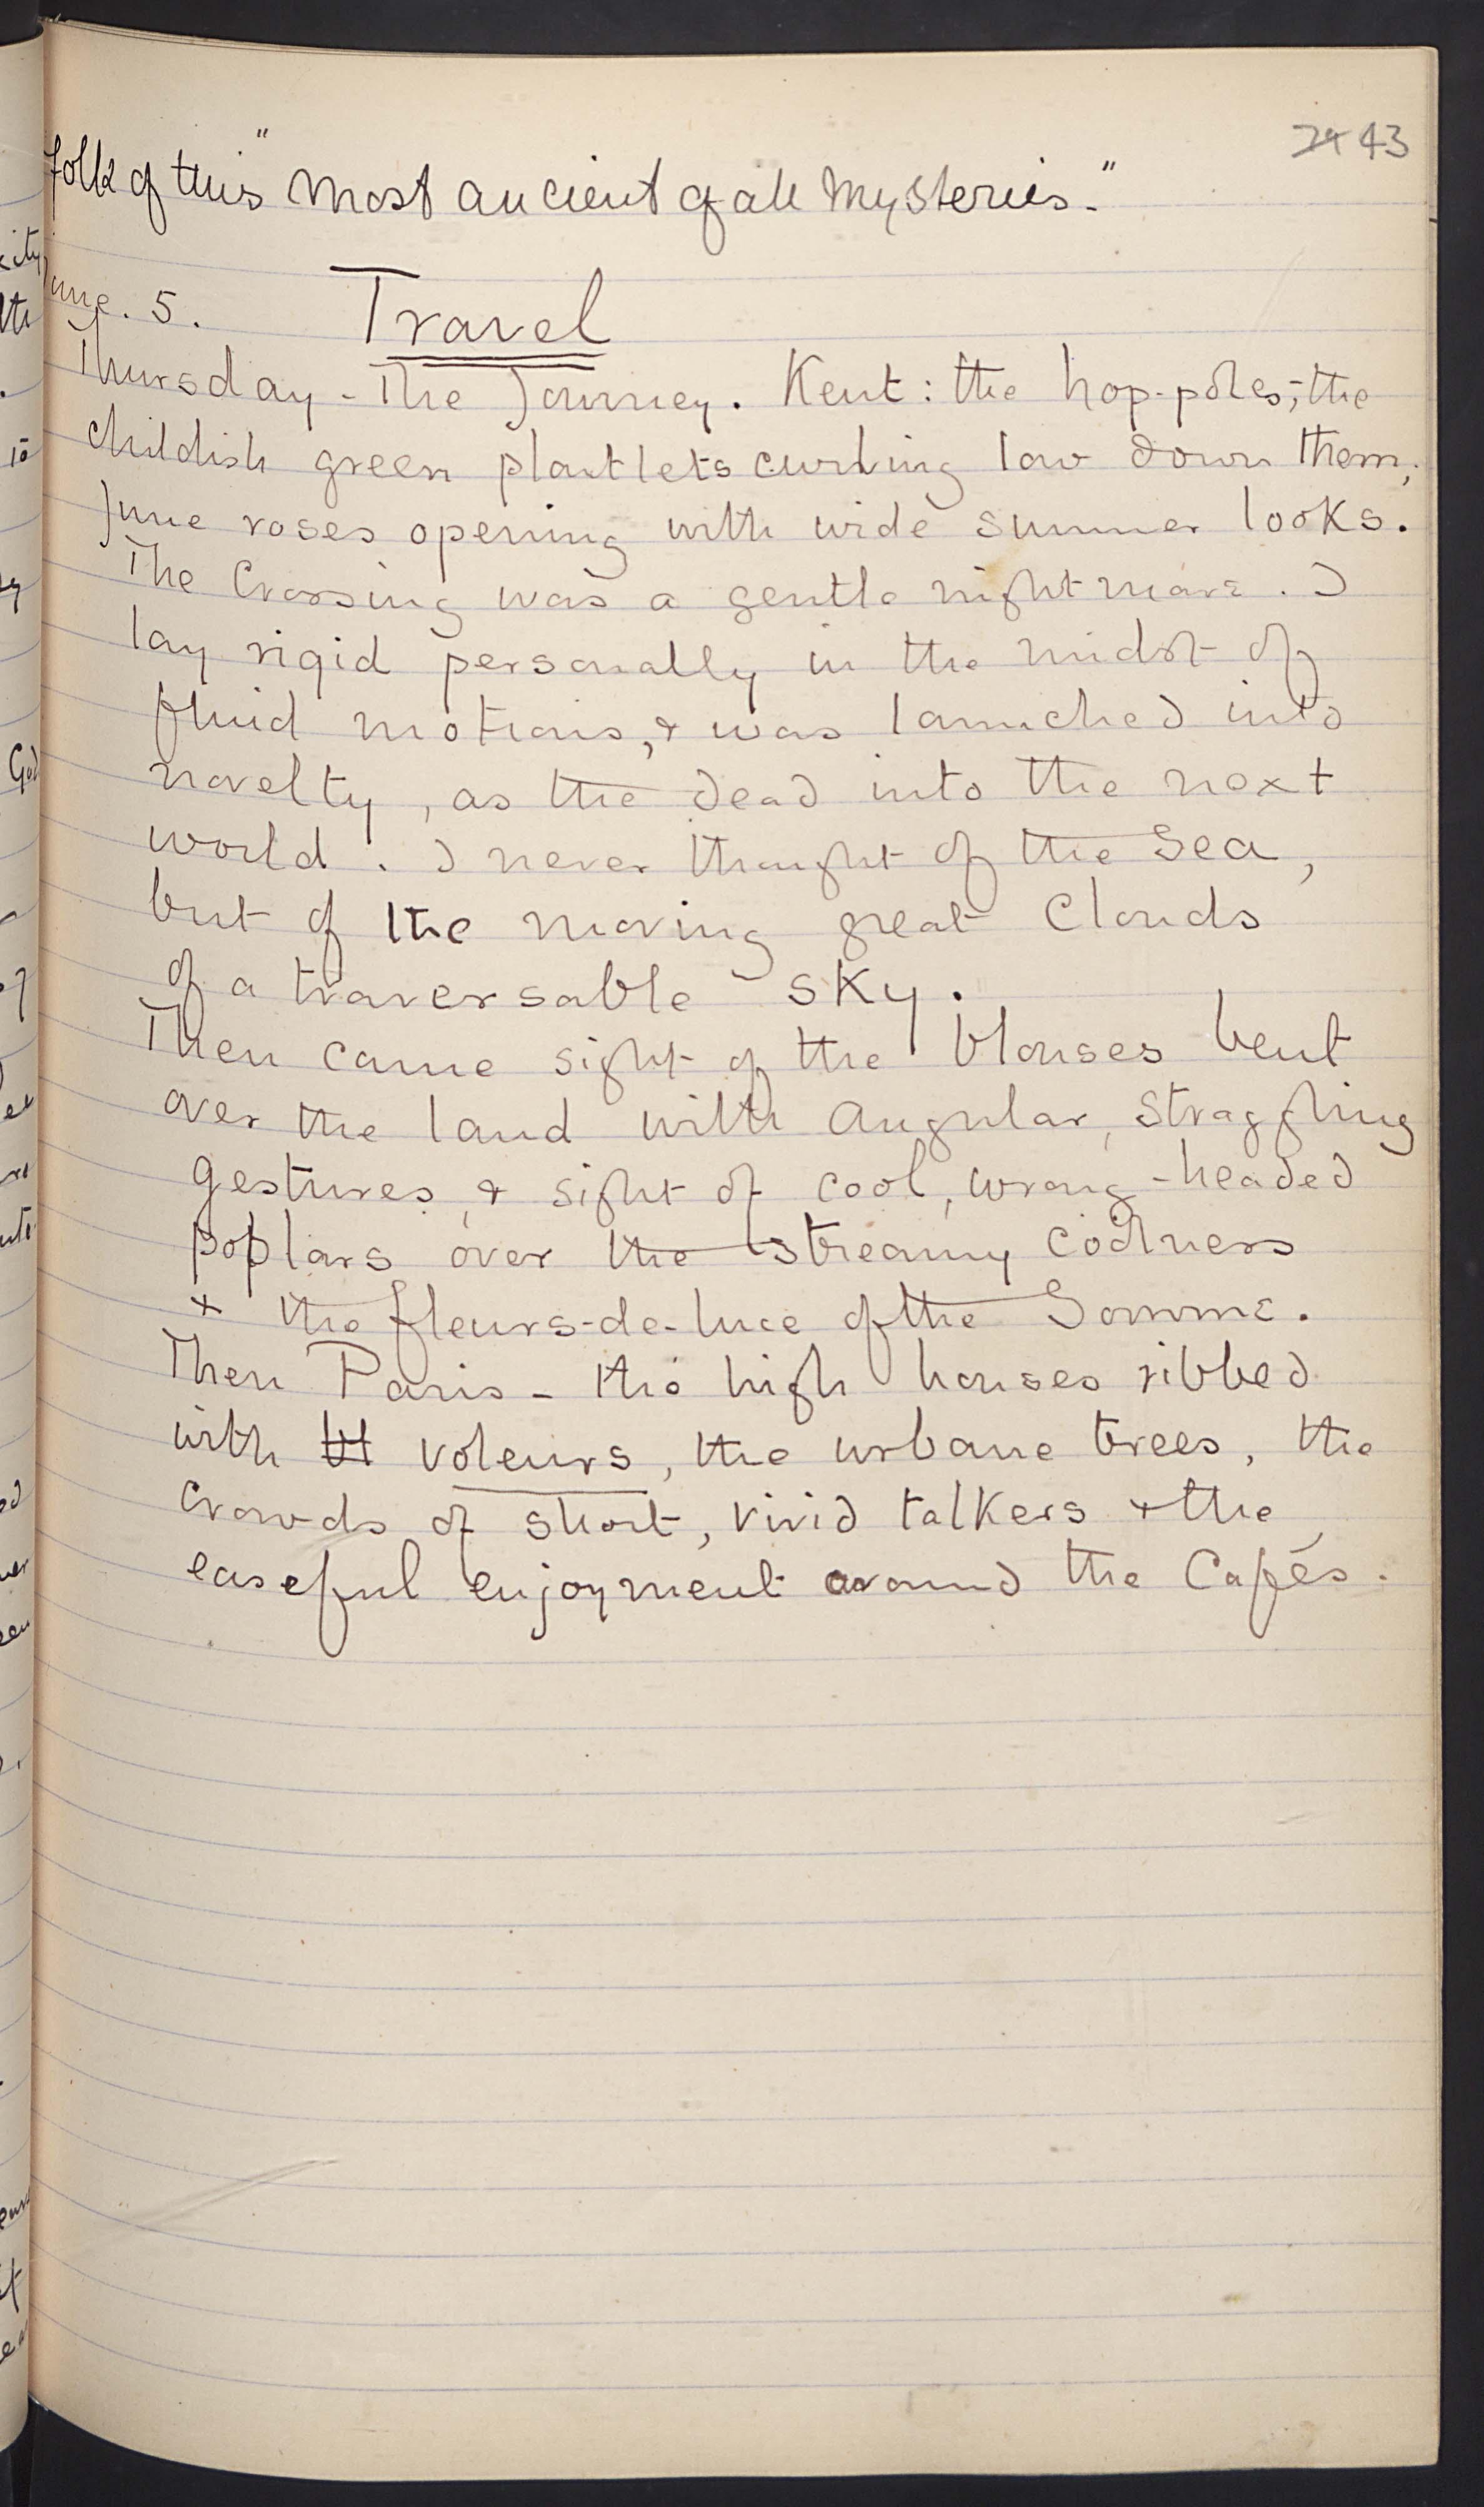 43
folk of this "most ancient of all mysteries."
June. 5. Travel
Thursday - The Journey. Kent: the hop-poles; the
childish green plantlets curling low down them;
June roses opening with wide summer looks.
The Crossing was a gentle nightmare. I
lay rigid personally in the midst of
fluid motions, & was launched into
novelty, as the dead into the next
world. I never thought of the Sea,
but of the moving great Clouds
of a traversable sky.
Then came sight of the blouses bent
over the land with angular, straggling
gestures, & sight of cool, wrong-headed
poplars over the streamy coolness
& the fleurs-de-luce of the Somme.
Then Paris - the high houses ribbed
with voleurs, the urbane trees, the
crowds of short, vivid talkers & the
easeful enjoyment around the Cafés.